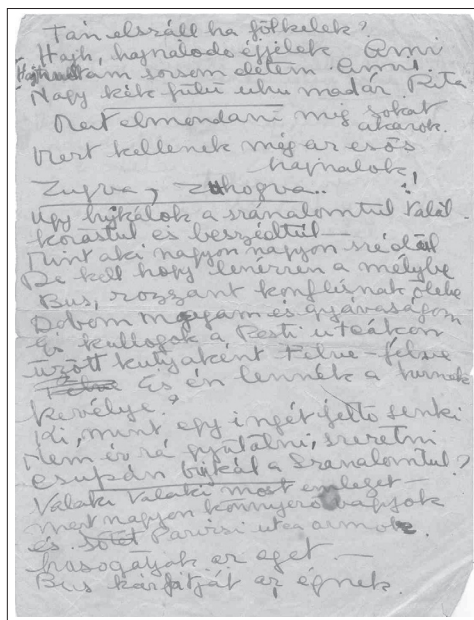 Tán elszáll ha fölkelek?
Hajh, hajnalodo éjjelek Anni
Hajh sorsom életem Anni
Nagy kék fülü uhu madár Rita
Mert elmondani mig sokat
akarok.
Mert kellenek még az esős
hajnalok!
Zugva, zuhogva..
Ugy bujkálok a szánalomtul talál-
kozástul és beszédtül—
Mint aki nagyon nagyon
De kell hogy lenézzen a mélybe
Bus, rozzant konflisnak elebe
Dobom magam és gyávaságom
És kullogok a Pesti utcákon
űzött kutyaként Félve-félve
És én lennék a
kevélye?
Ki, mint egy ingét senki
Nem ér rá gyülölni, szeretni
csupán bujkál a szánalomtul?
Valaki valaki most emleget—
mert nagyon könnyező vagyok
és Párizsi utca
hasogatják az eget —
Bus kárpitját az égnek.